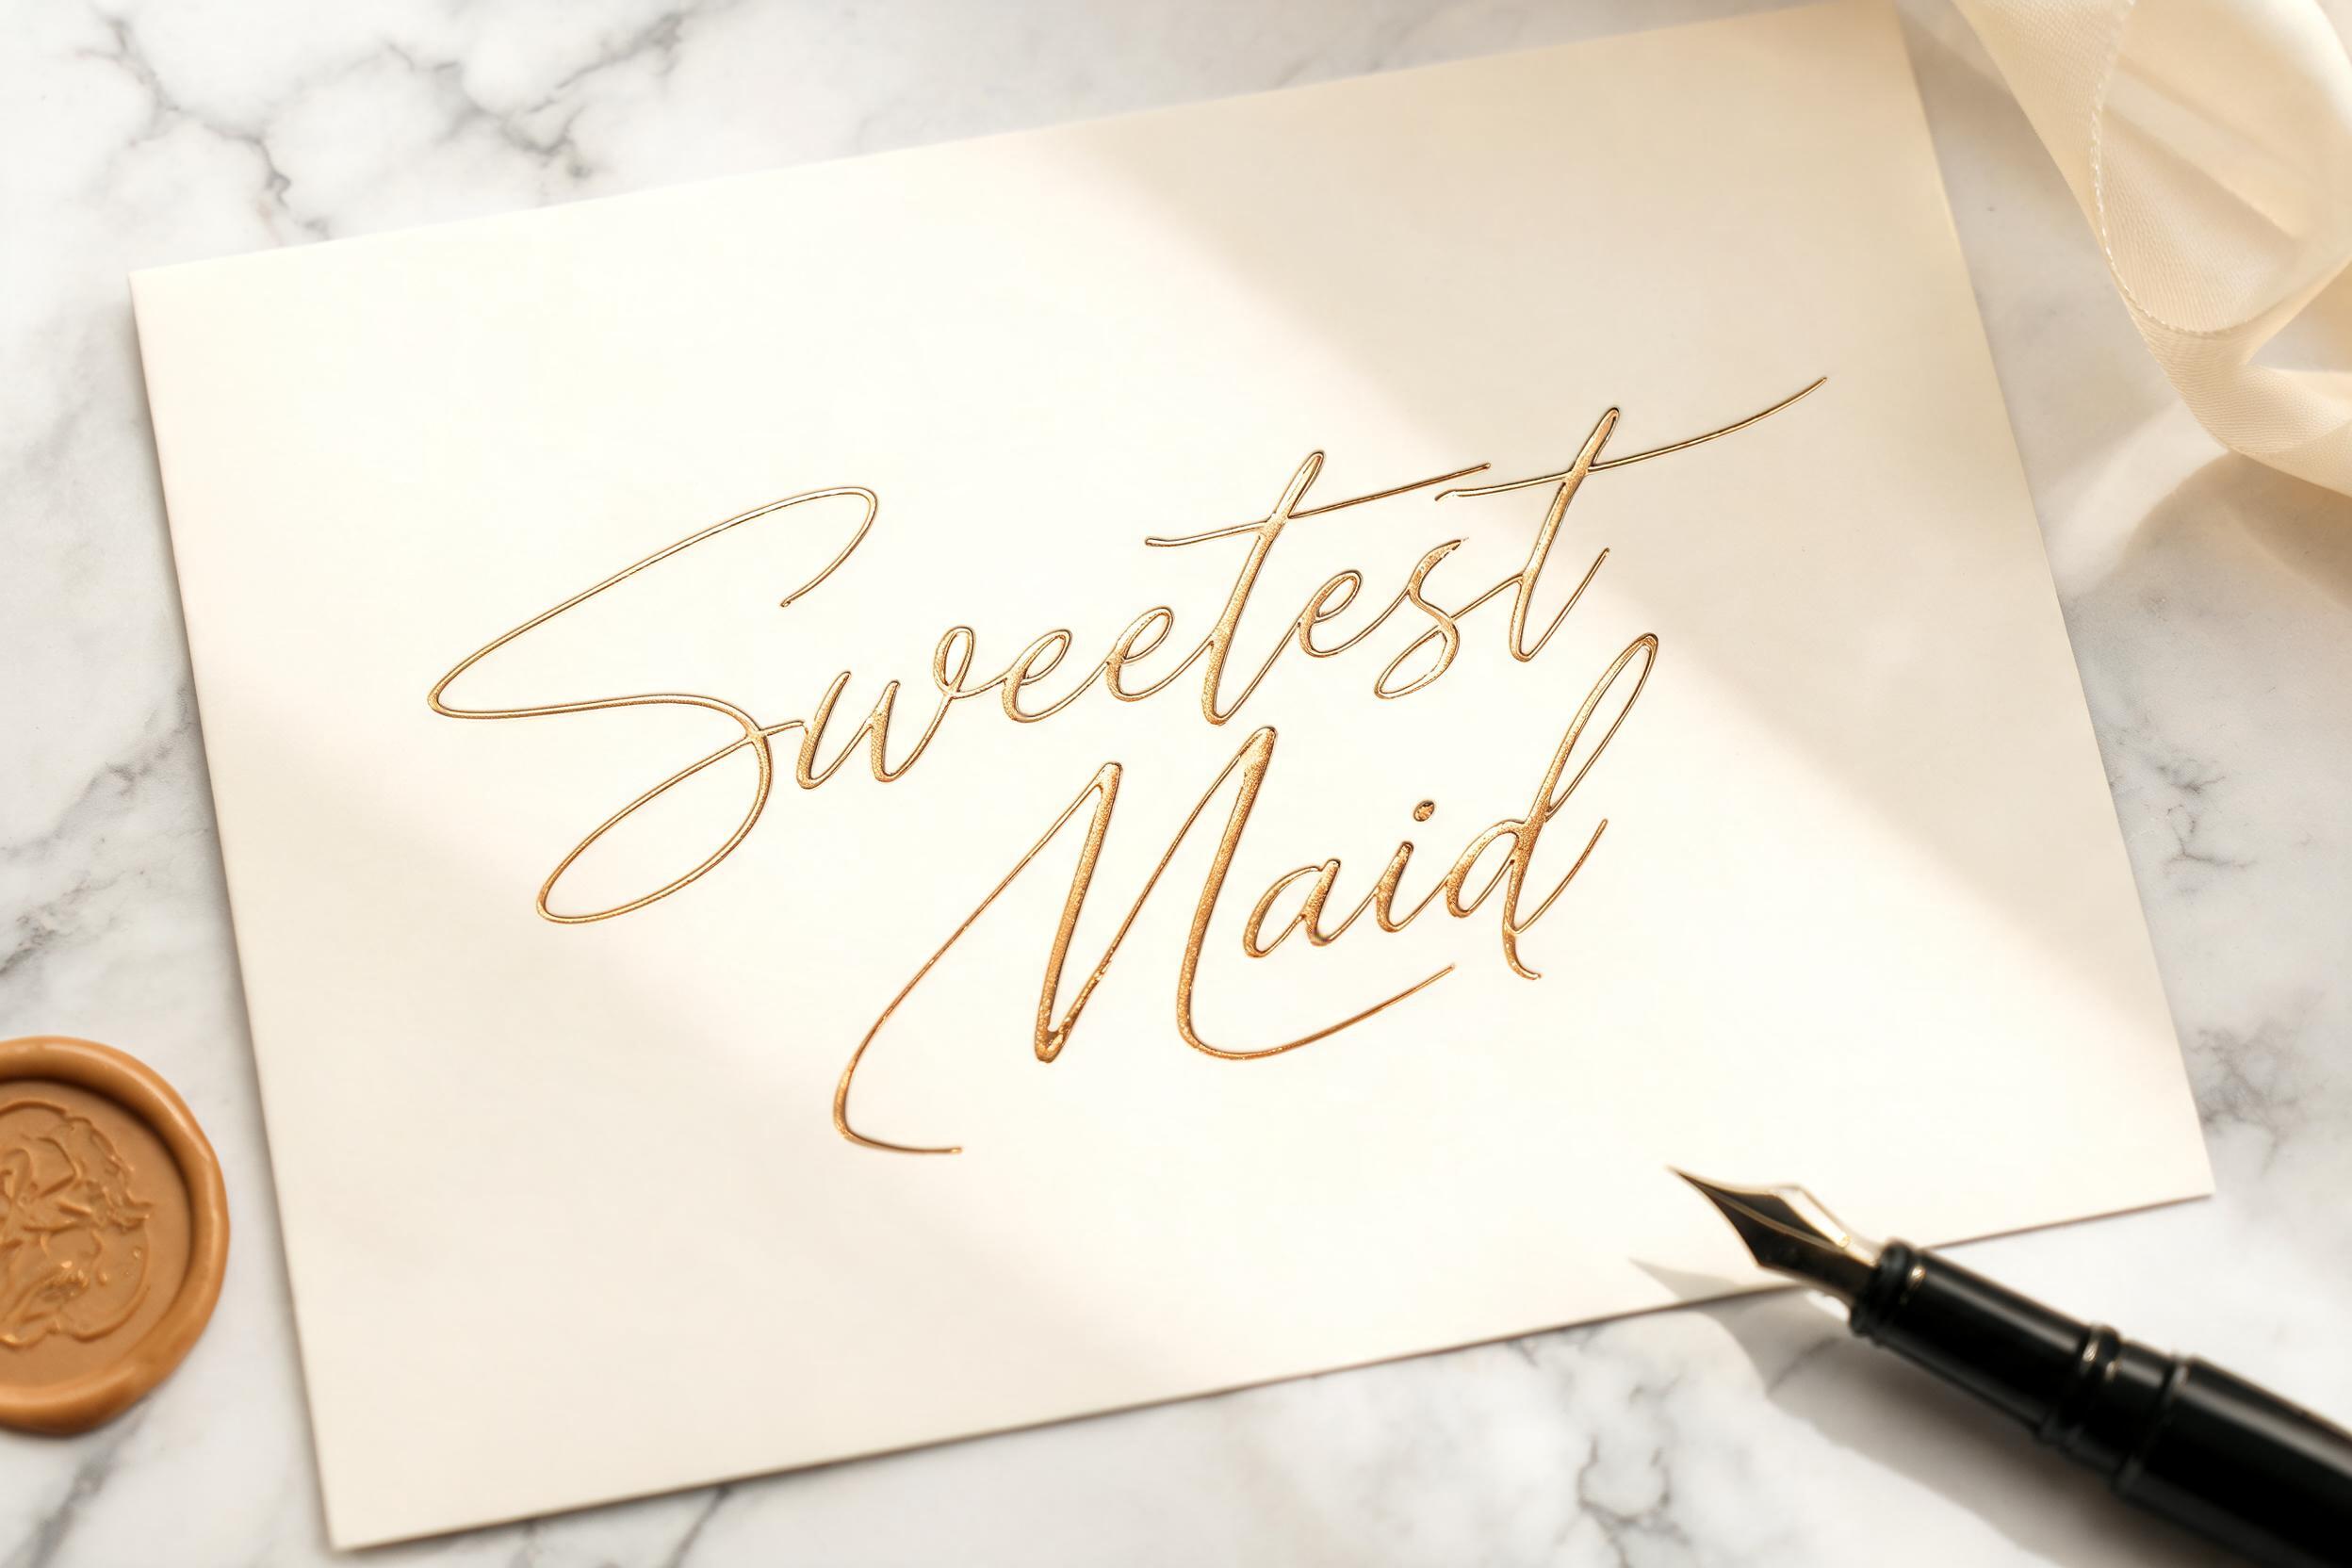 Sweetest
Maid